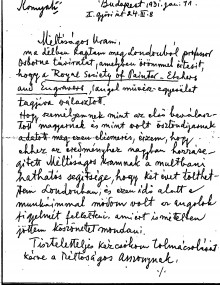 Budapest 1931. jan. 11.
Méltóságos Uram!
ma délben kaptam meg Londonból professor
Osborne táviratát, amelyben örömmel értesít,
hogy a Royal Society of Painter-Etchers
and Engravers, angol művész-egyesület
tagjává választott.
Hogy személyemet mint az első beválasz-
tott magyarnak és mint volt ösztöndíjasnak
adatott meg ezen elismerés, érzem, hogy
ehhez az eredményhez nagyban hozzáse-
gített Méltóságos Uramnak a multban
hathatós segítsége, hogy két évet tölthet-
tem Londonban, és ezen idő alatt a
munkáimmal módom volt az angolok
figyelmét felkelteni, amiért ismételten
jöttem köszönetet mondani.
Tiszteletteljes kézcsókom tolmácsolását
kérve a Méltóságos Asszonynak,
./.